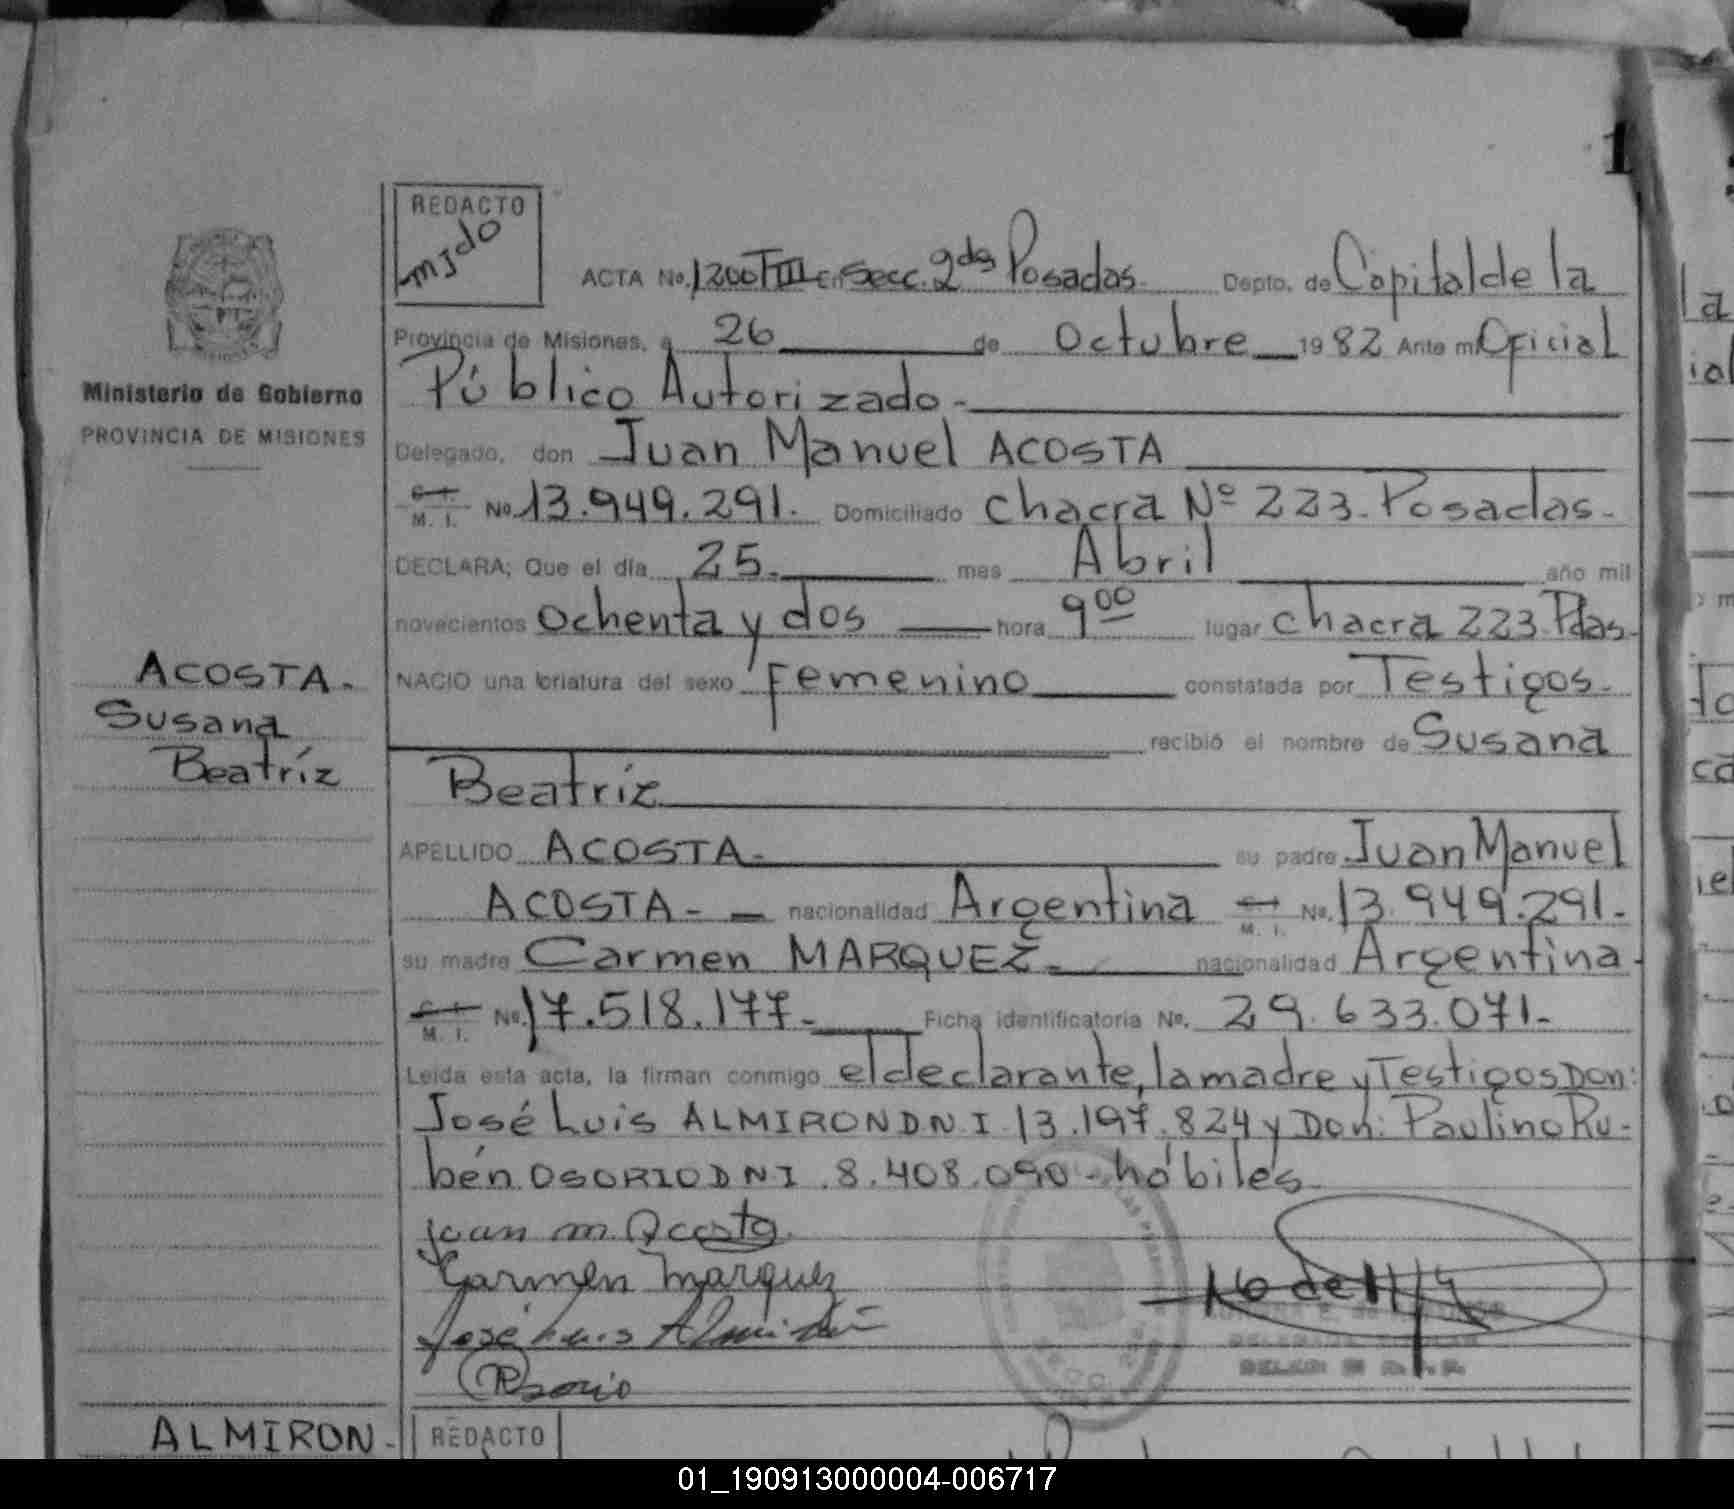 1
REDACTO
mjdo
ACTA No. 1200 TIII C. Secc. 2da Posadas. Depto. de Capital de la
Provincia de Misiones, a 26 de Octubre 1982 Ante mi Oficial
Ministerio de Gobierno
PROVINCIA DE MISIONES
Público Autorizado-
Delegado, don Juan Manuel ACOSTA
C. I. M. I. No. 13.949.291. Domiciliado chacra Nº 223. Posadas.
DECLARA; Que el día 25. mes Abril año mil
novecientos ochenta y dos hora 9 00 lugar chacra 223. Pdas.
ACOSTA.
Susana
Beatríz
NACIO una criatura del sexo Femenino constatada por Testigos.
recibió el nombre de Susana
Beatríz
APELLIDO ACOSTA. su padre Juan Manuel
ACOSTA- nacionalidad Argentina M. I. No. 13.949.291.
su madre Carmen MARQUEZ. nacionalidad Argentina.
C. I. M. I. No. 17.518.177. Ficha identificatoria No. 29.633.071-
Leida esta acta, la firman conmigo el declarante, la madre y Testigos Don:
José Luis ALMIRON D N I 13.197.824 y Don: Paulino Ru-
bén OSORIO D N I. 8.408.090 - hábiles
Juan m. Acosta
Carmen Marquez
José Luis Almirón
Osorio
ALMIRON-
REDACTO
01_190913000004-006717